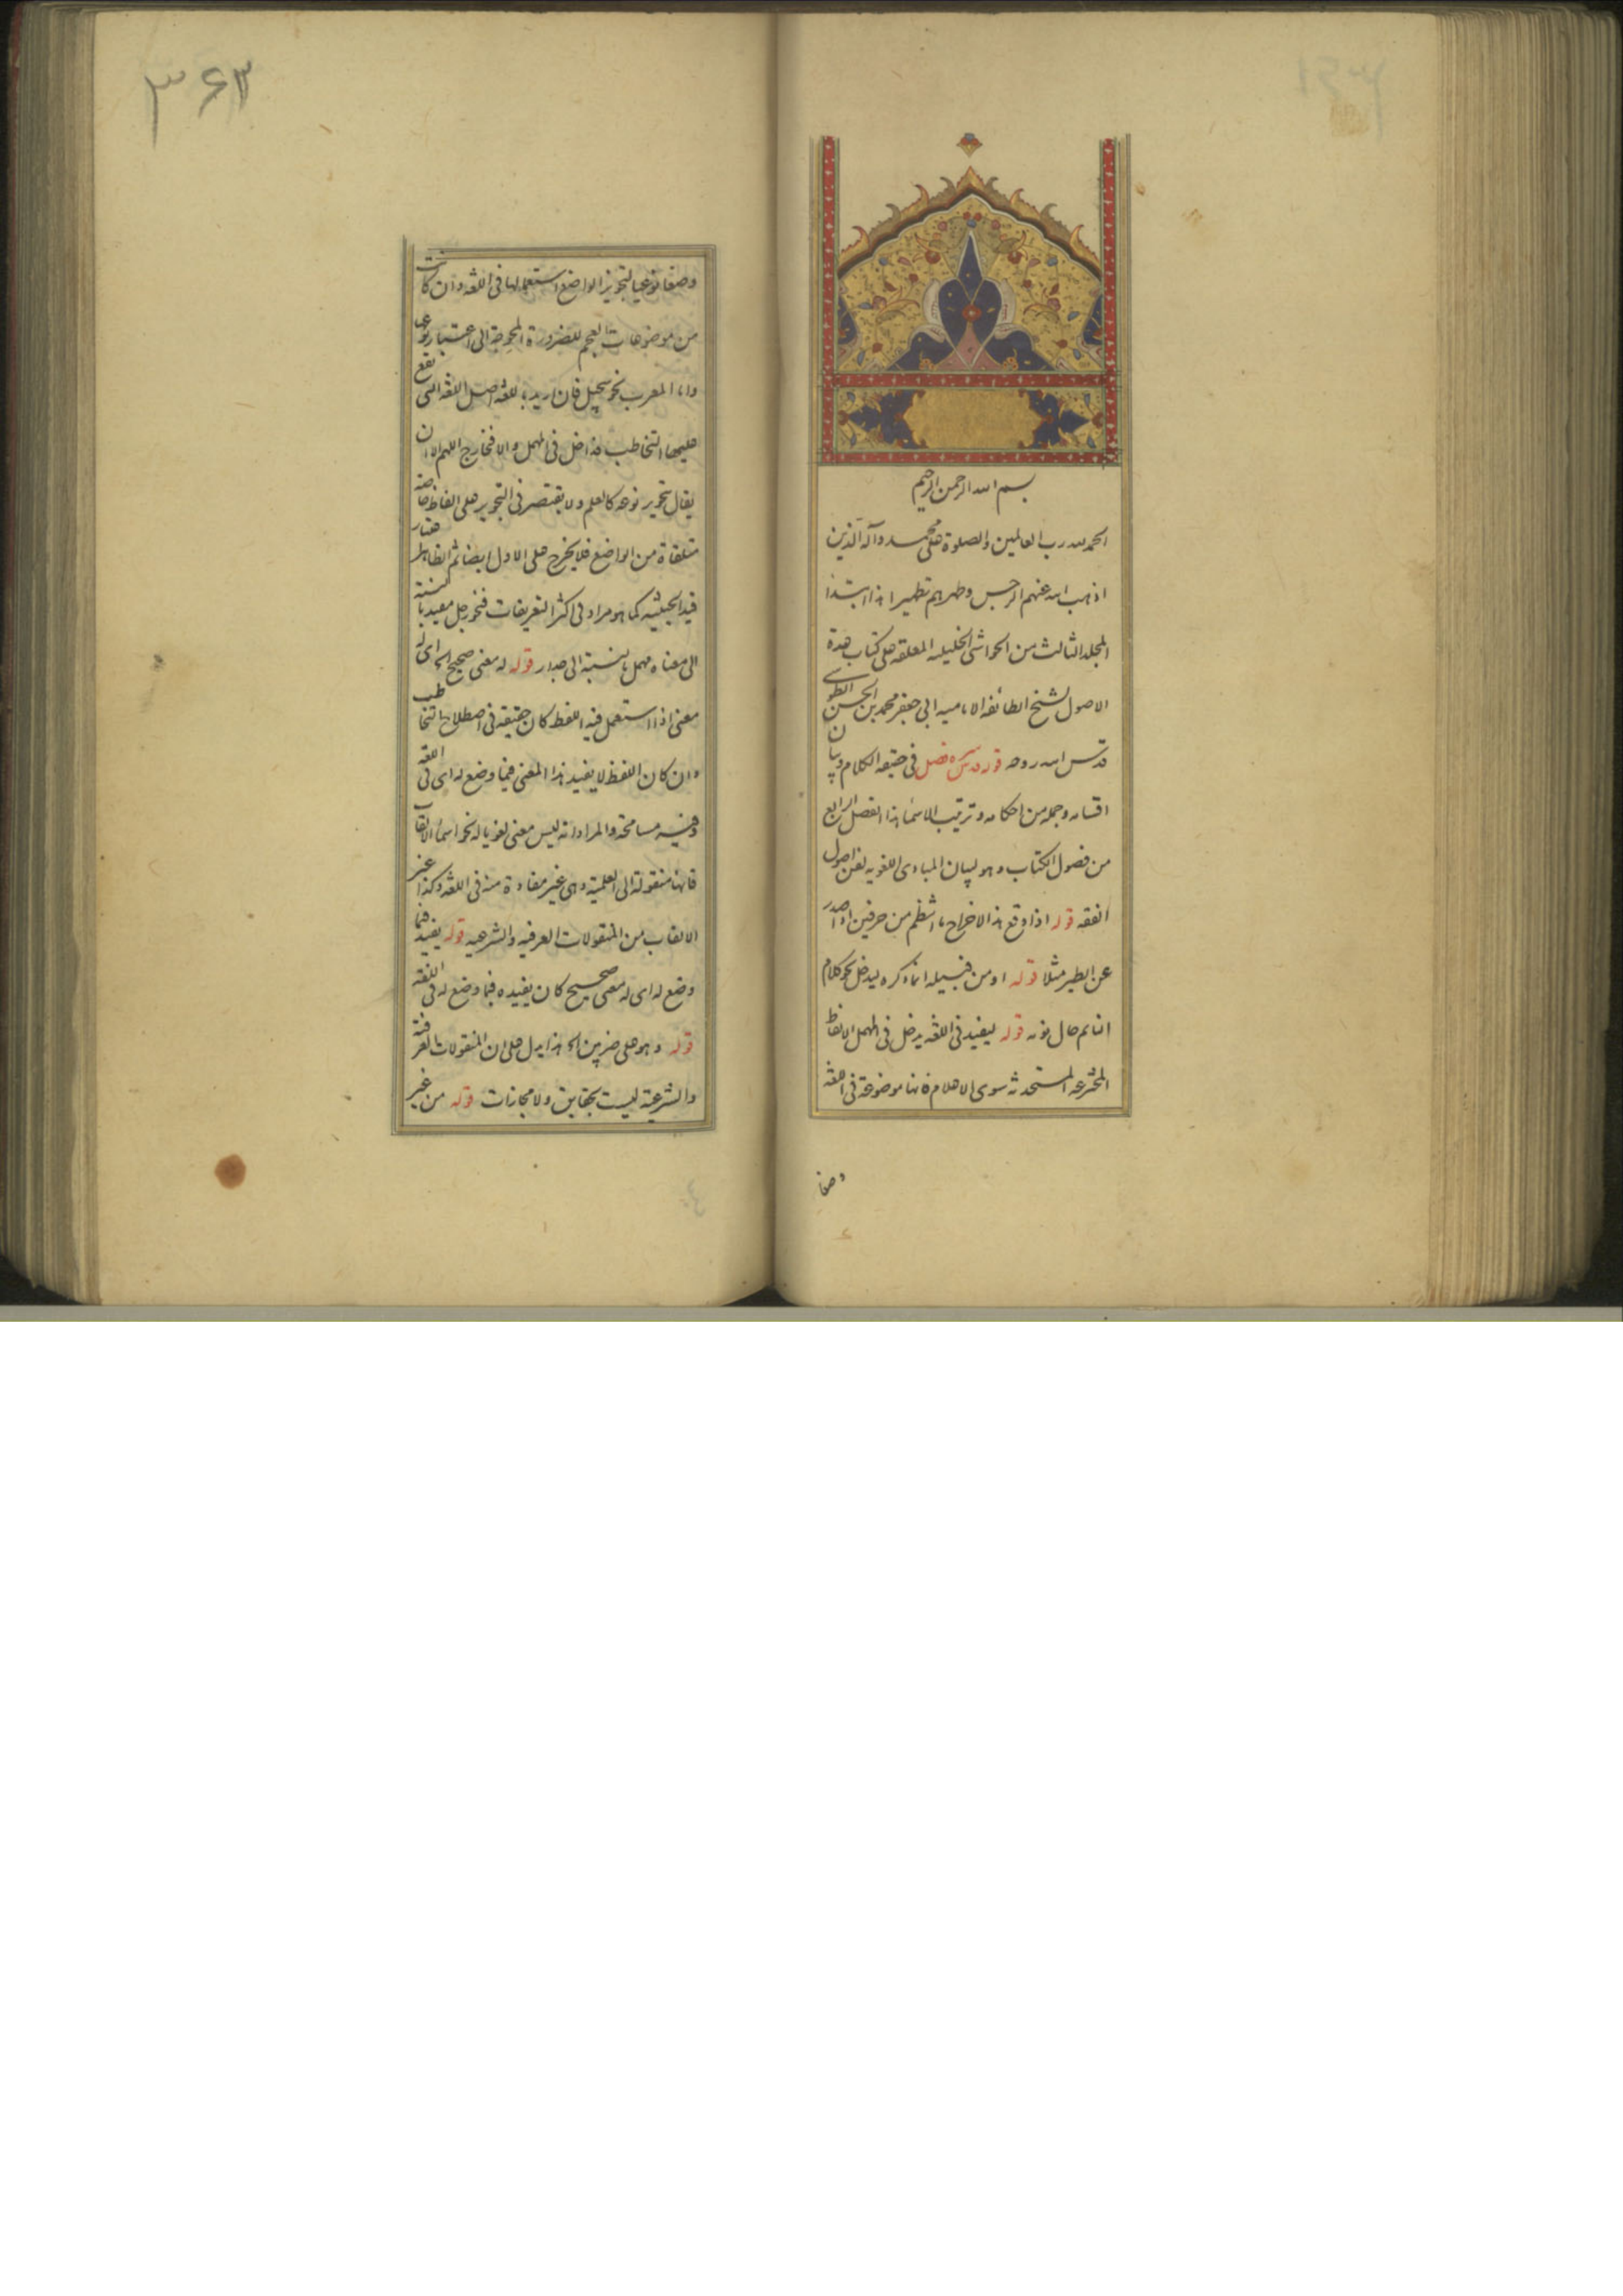 بسم الله الرحمن الرحیم
الحمد لله رب العالمین والصلوة علی محمد وآله الذین
اذهب الله عنهم الرجس وطهرهم تطهیرا هذا ابتداء
المجلد الثالث من الحواشی الخلیلیه المعلقه علی کتاب عدة
الاصول لشیخ الطائفه الامامیه ابی جعفر محمد بن الحسن الطوسی
قدس الله روحه قوله قدس سره فصل فی حقیقه الکلام وبیان
اقسامه وجمله من احکامه وترتیب الاسماء هذا الفصل الرابع
من فصول الکتاب وهو لبیان المبادی اللغویه لفن اصول
الفقه قوله اذا وقع هذا الاخراج ما انتظم من حرفین اذا صدر
عن الطیر مثلا قوله او من قبیله انما ذکره لیدخل نحو کلام
النائم حال نومه قوله لیفید فی اللغه یدخل فی المهمل الالفاظ
المخترعه المستحدثه سوی الاعلام فانها موضوعة فی اللغه
وضعا
۳۶۳
وضعا نوعیا لتجویز الواضع استعمالها فی اللغه وان کانت
من موضوعات العجم للضرورة المحوجة الی اعتبار نوعی
واما المعرب نحو سجیل فان ارید باللغه اصل اللغه التی یقع
علیها التخاطب فداخل فی المهمل والا فخارج اللهم الا ان
یقال تجویز نوعه کالعلم ولا یقتصر فی التجویز علی الفاظ خاصة
متلقاة من الواضع فلا یخرج علی الاول ایضا ثم الظاهر اعتبار
قید الحیثیه کما هو مراد فی اکثر التعریفات فنحو رجل مفید بالنسبة
الی معناه مهمل بالنسبة الی جدار قوله له معنی صحیح الخ ای له
معنی اذا استعمل فیه اللفظ کان حقیقه فی اصطلاح التخاطب
وان کان اللفظ لا یفید هذا المعنی فیما وضع له ای فی اللغه
وفیه مسامحة والمراد انه لیس معنی لغویا له نحو اسماء الالقاب
فانها منقولة الی العلمیة وهی غیر مفادة منه فی اللغه وکذا غیر
الالقاب من المنقولات العرفیه والشرعیه قوله یفید فیما
وضع له ای له معنی صحیح کان یفیده فیما وضع له فی اللغه
قوله وهو علی ضربین الخ هذا یدل علی ان المنقولات العرفیة
والشرعیة لیست بحقایق ولا مجازات قوله من غیر